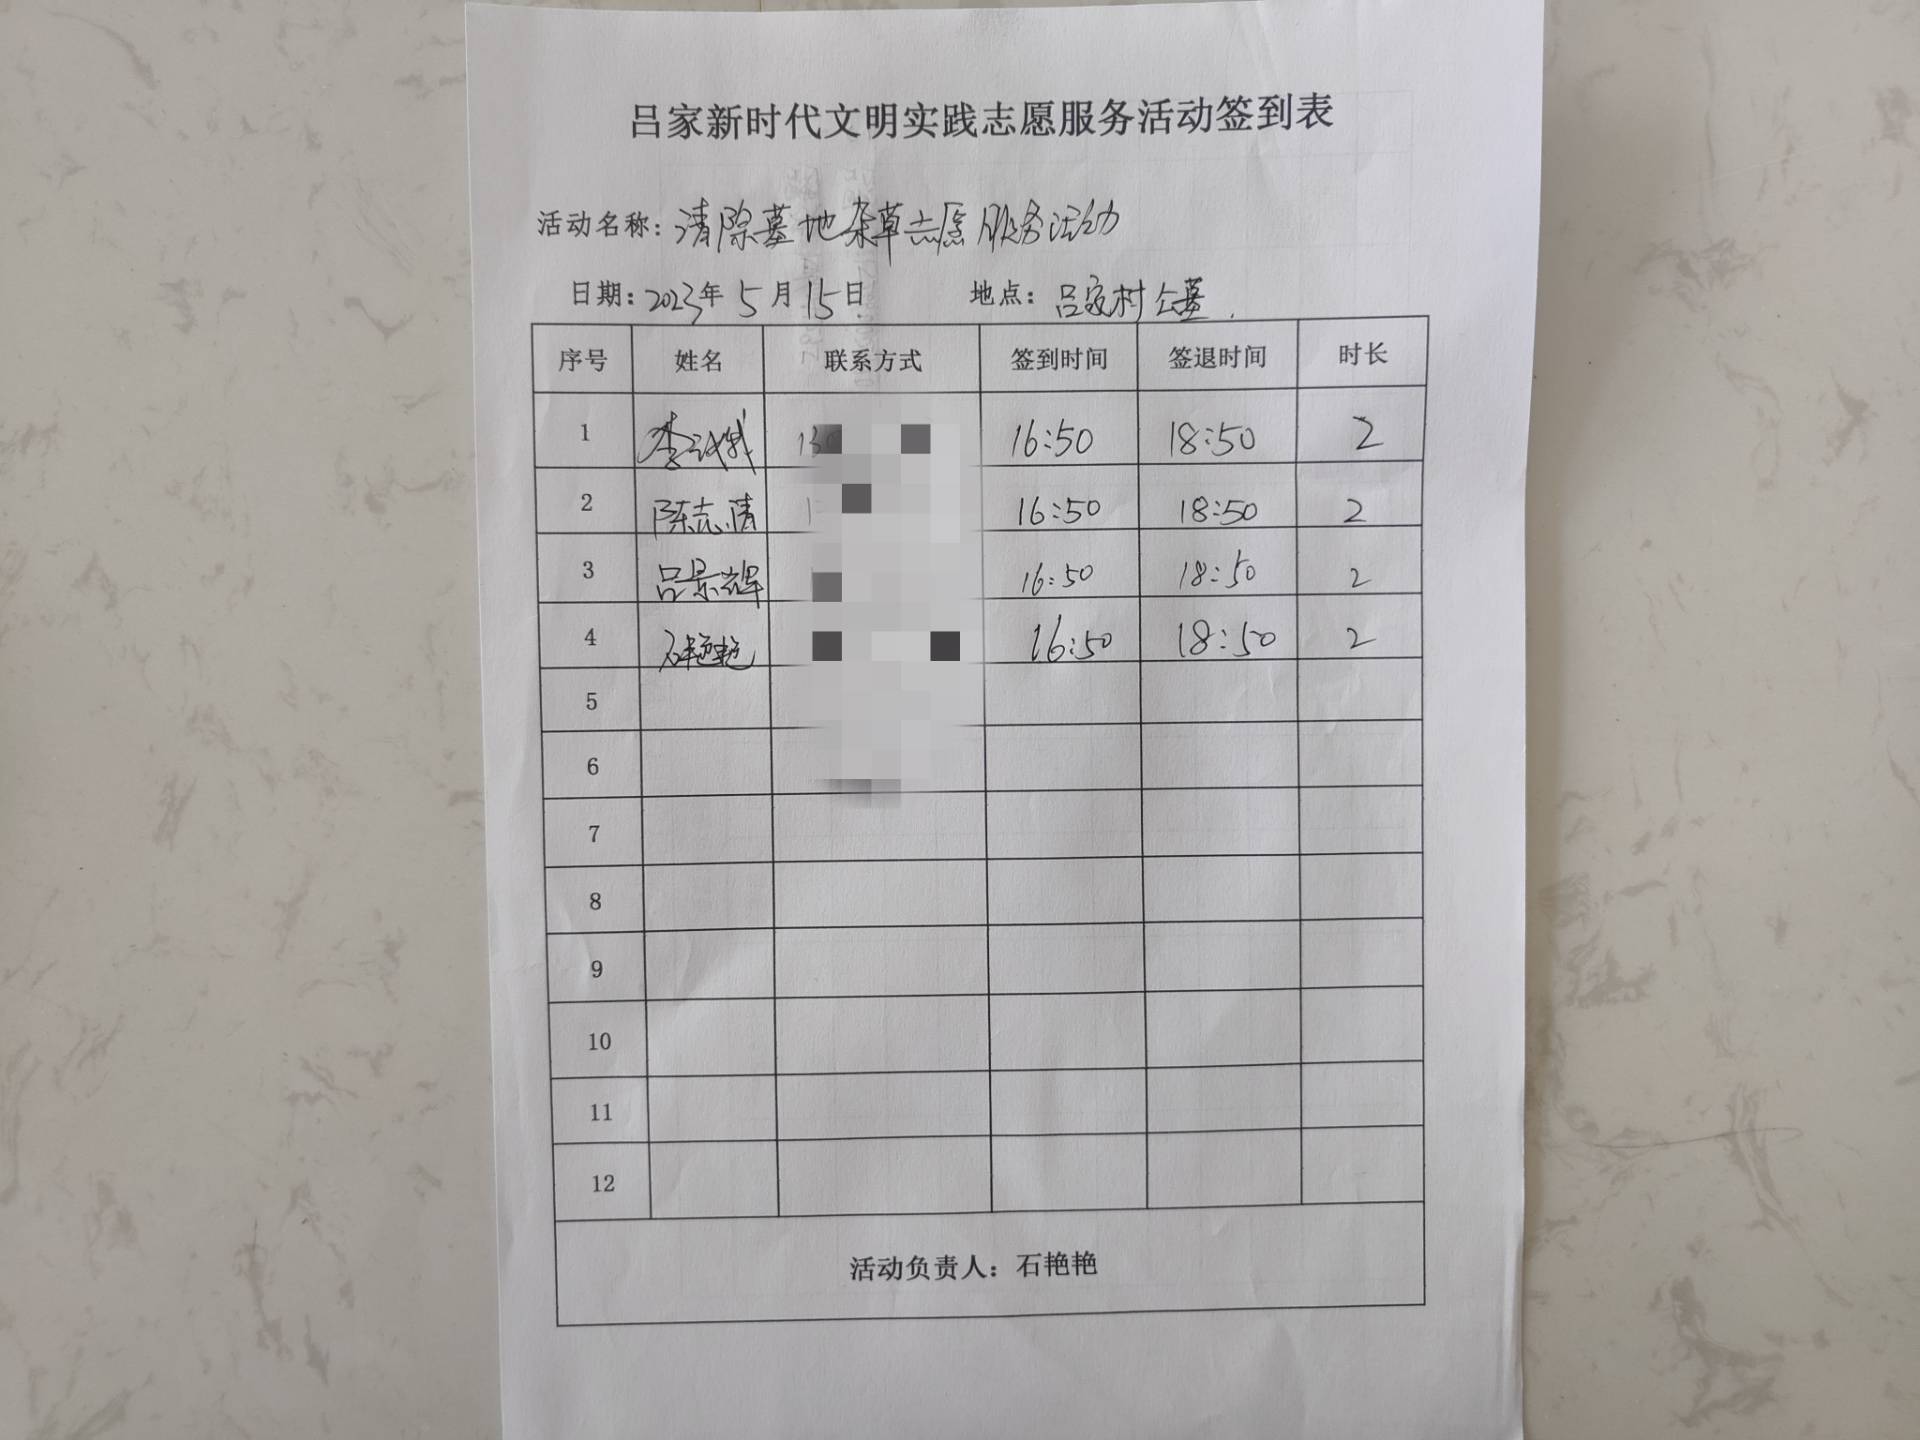 吕家新时代文明实践志愿服务活动签到表
活动名称：清除墓地杂草志愿服务活动
日期：2023年 5 月 15 日 地点：吕家村公墓
序号 姓名 联系方式 签到时间 签退时间 时长
1 16:50 18:50 2
2 陈志清 16:50 18:50 2
3 吕景辉 16:50 18:50 2
4 石艳艳 16:50 18:50 2
5
6
7
8
9
10
11
12
活动负责人：石艳艳